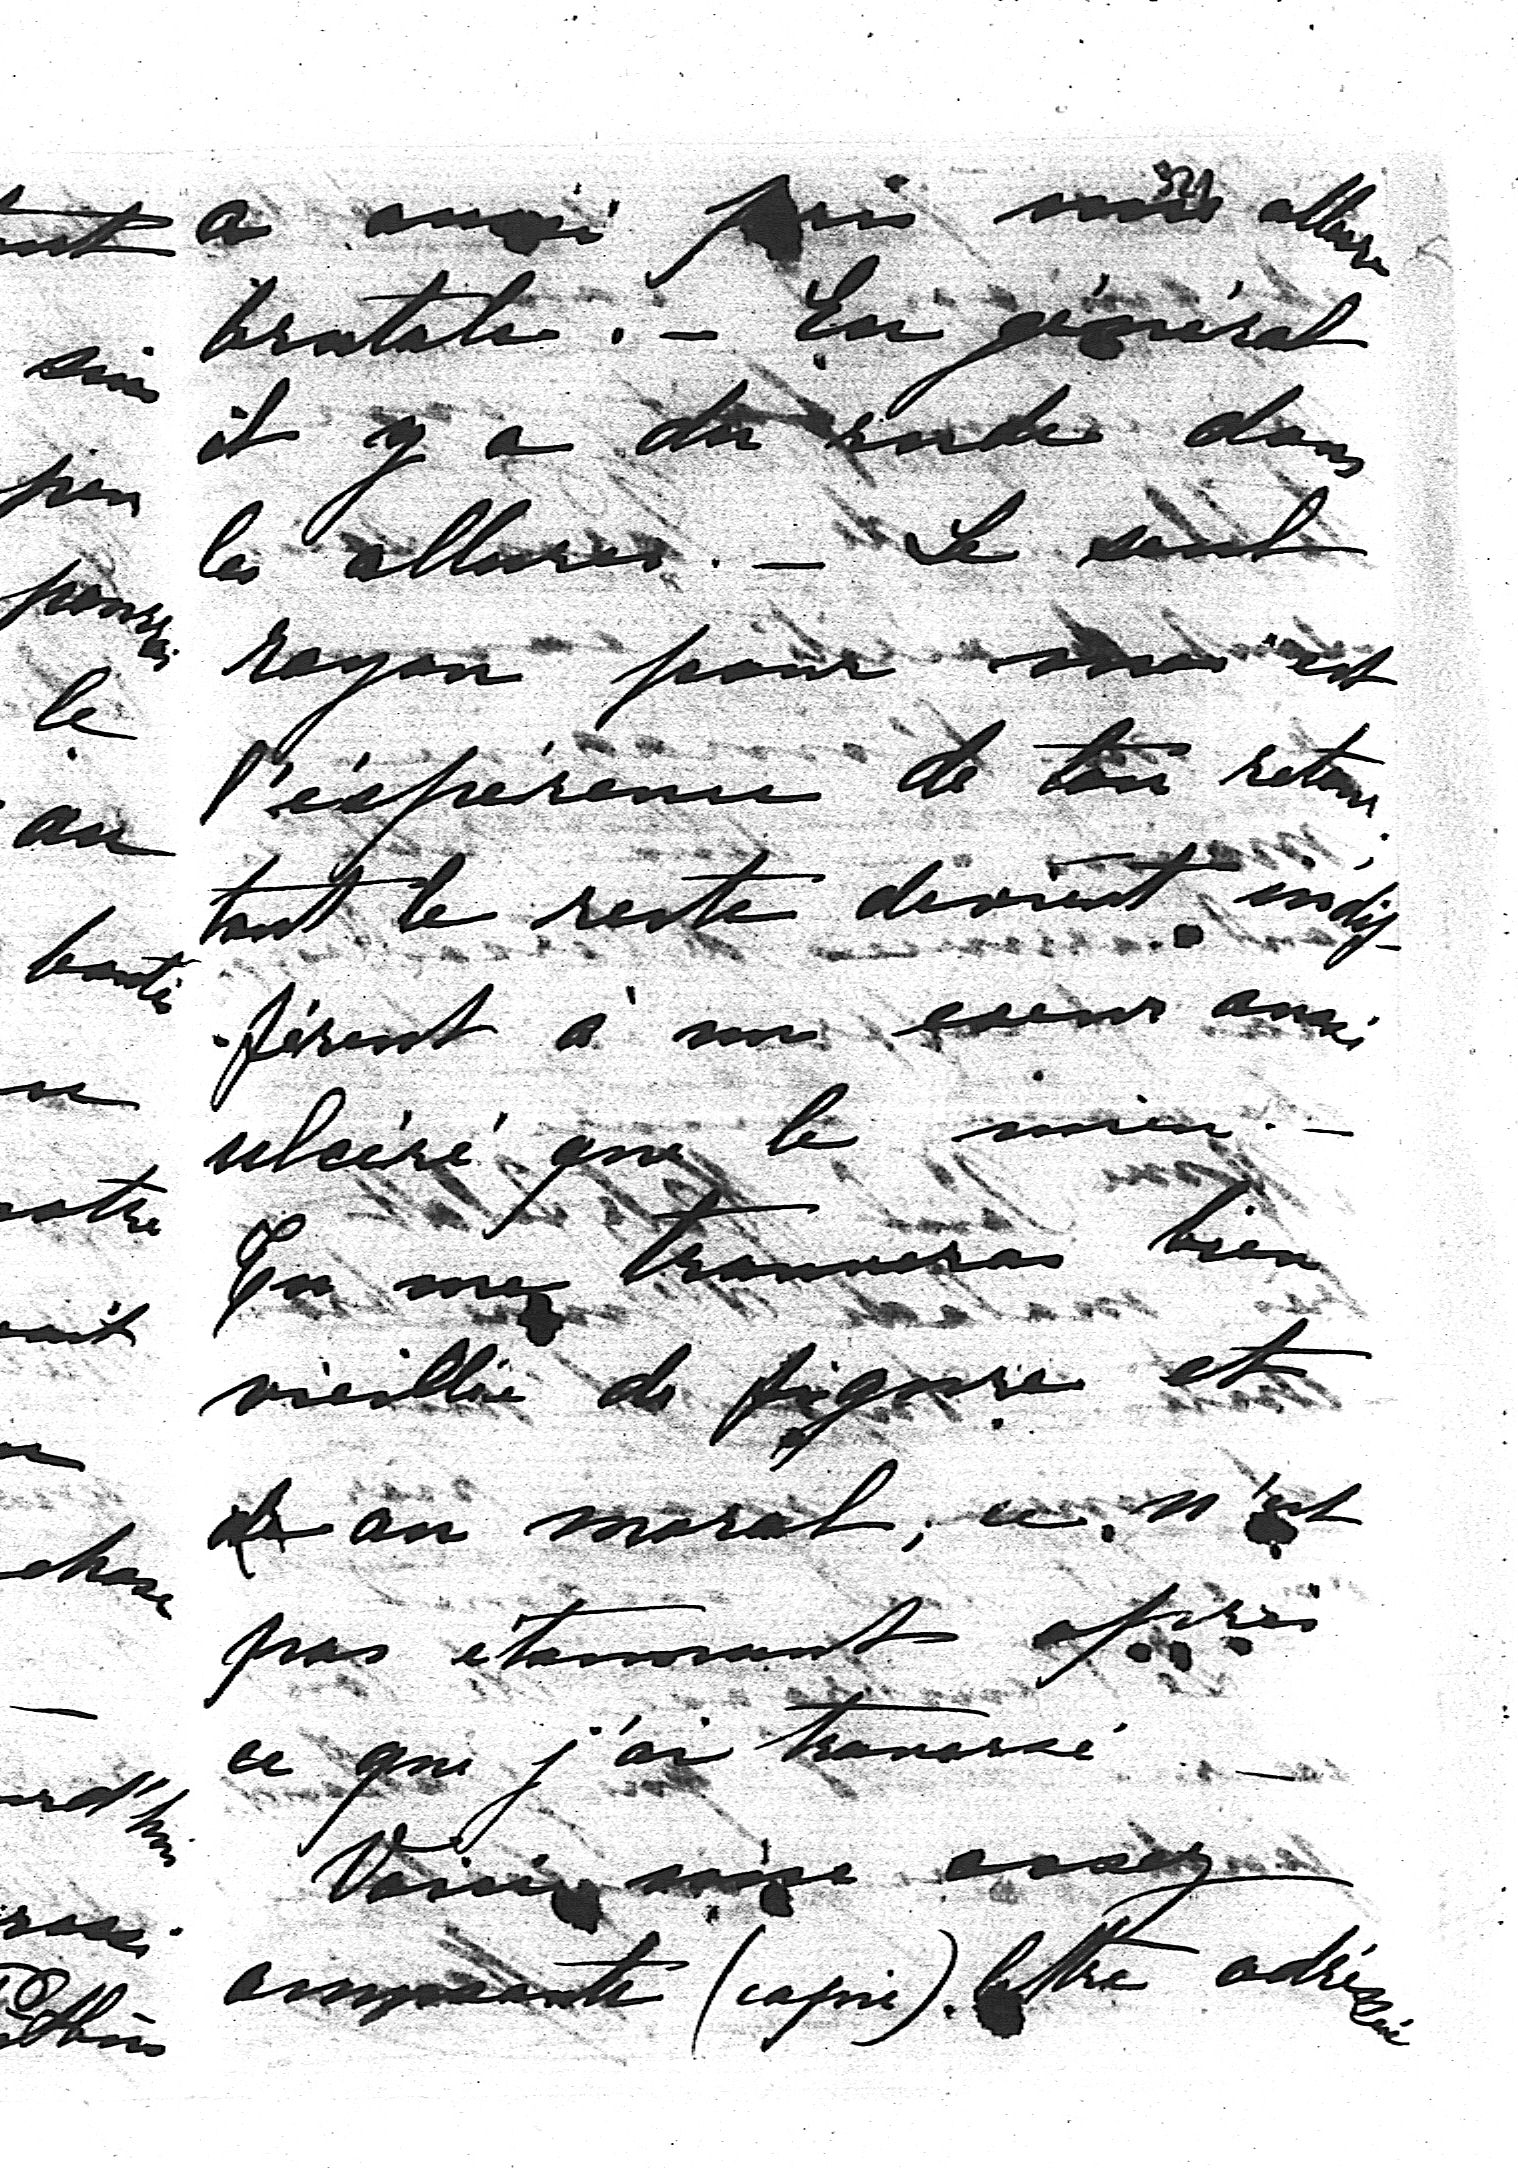 321
a aussi pris une allure
brutale. – En général
il y a du rude dans
les allures. – Le seul
rayon pour moi est
l'éspérence de ton retour.
tout le reste devient indif
férent à un coeur aussi
ulcéré que le mien. –
Tu me trouveras bien
vieillie de figure et
au moral, ce n'est
pas étonnant après
ce que j'ai traversé –
Voici une assez
amusante (copie) lettre adréssée
sin
peu
pourrai
le
au
bontés
notre
chose